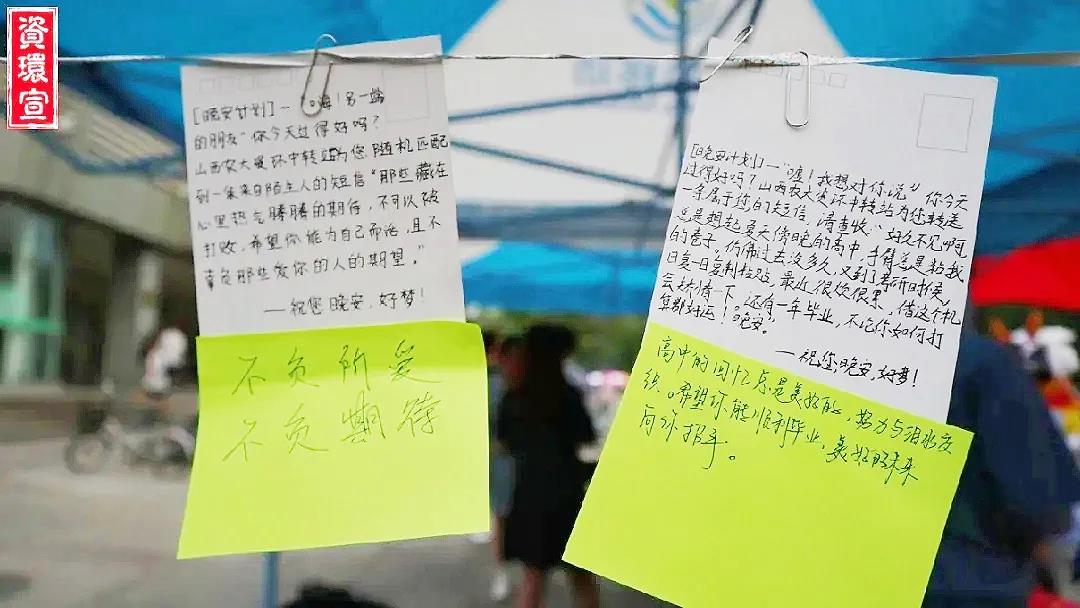 資環宣
[晚安计划]—"嗨！另一端
的朋友"你今天过得好吗？
山西农大资环中转站为您随机匹配
到一条来自陌生人的短信"那些藏在
心里热气腾腾的期待，不可以被
打败，希望你能为自己而活，且不
辜负那些爱你的人的期望。"
—祝您晚安，好梦！
不负所爱
不负期待
[晚安计划]—"嘘！我想对你说"你今天
过得好吗？山西农大资环中转站为您转送
一条属于您的短信，请查收："好久不见啊
总是想起夏天傍晚的高中，手臂总是粘我
的卷子，仿佛过去没多久，又到了考研时候，
日复一日复制粘贴，最近很烦很累，借这个机
会抒情一下，还有一年毕业，不论你如何打
算都好运！晚安"
—祝您晚安，好梦！
高中的回忆总是美好的，努力与泪水交
织。希望你能顺利毕业，美好的未来
向你招手。